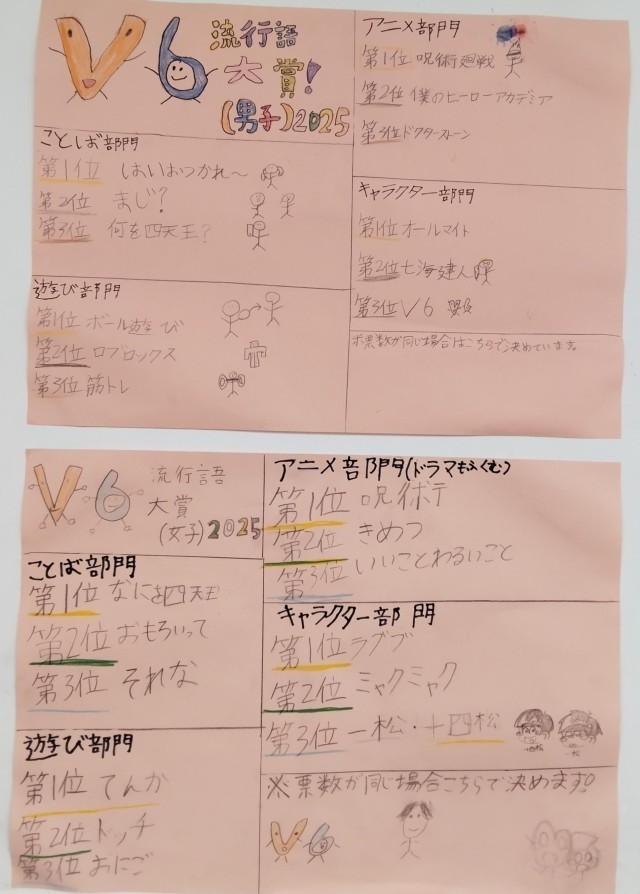 V6 流行語
大賞!
(男子)2025
ことば部門
第1位 はいおつかれ〜
第2位 まじ?
第3位 何を四天王?
遊び部門
第1位 ボール遊び
第2位 ロブロックス
第3位 筋トレ
アニメ部門
第1位 呪術廻戦
第2位 僕のヒーローアカデミア
第3位 ドクターストーン
キャラクター部門
第1位 オールマイト
第2位 七海建人
第3位 V6
票数が同じ場合はこちらで決めています。
V6 流行語
大賞
(女子)2025
ことば部門
第1位 なにを四天王
第2位 おもろいって
第3位 それな
遊び部門
第1位 てんか
第2位 ドッチ
第3位 おにご
アニメ部門(ドラマもふくむ)
第1位
第2位 きめつ
第3位 いいことわるいこと
キャラクター部門
第1位 ラブブ
第2位 ミャクミャク
第3位 一松・十四松
※票数が同じ場合こちらで決めます!
V6